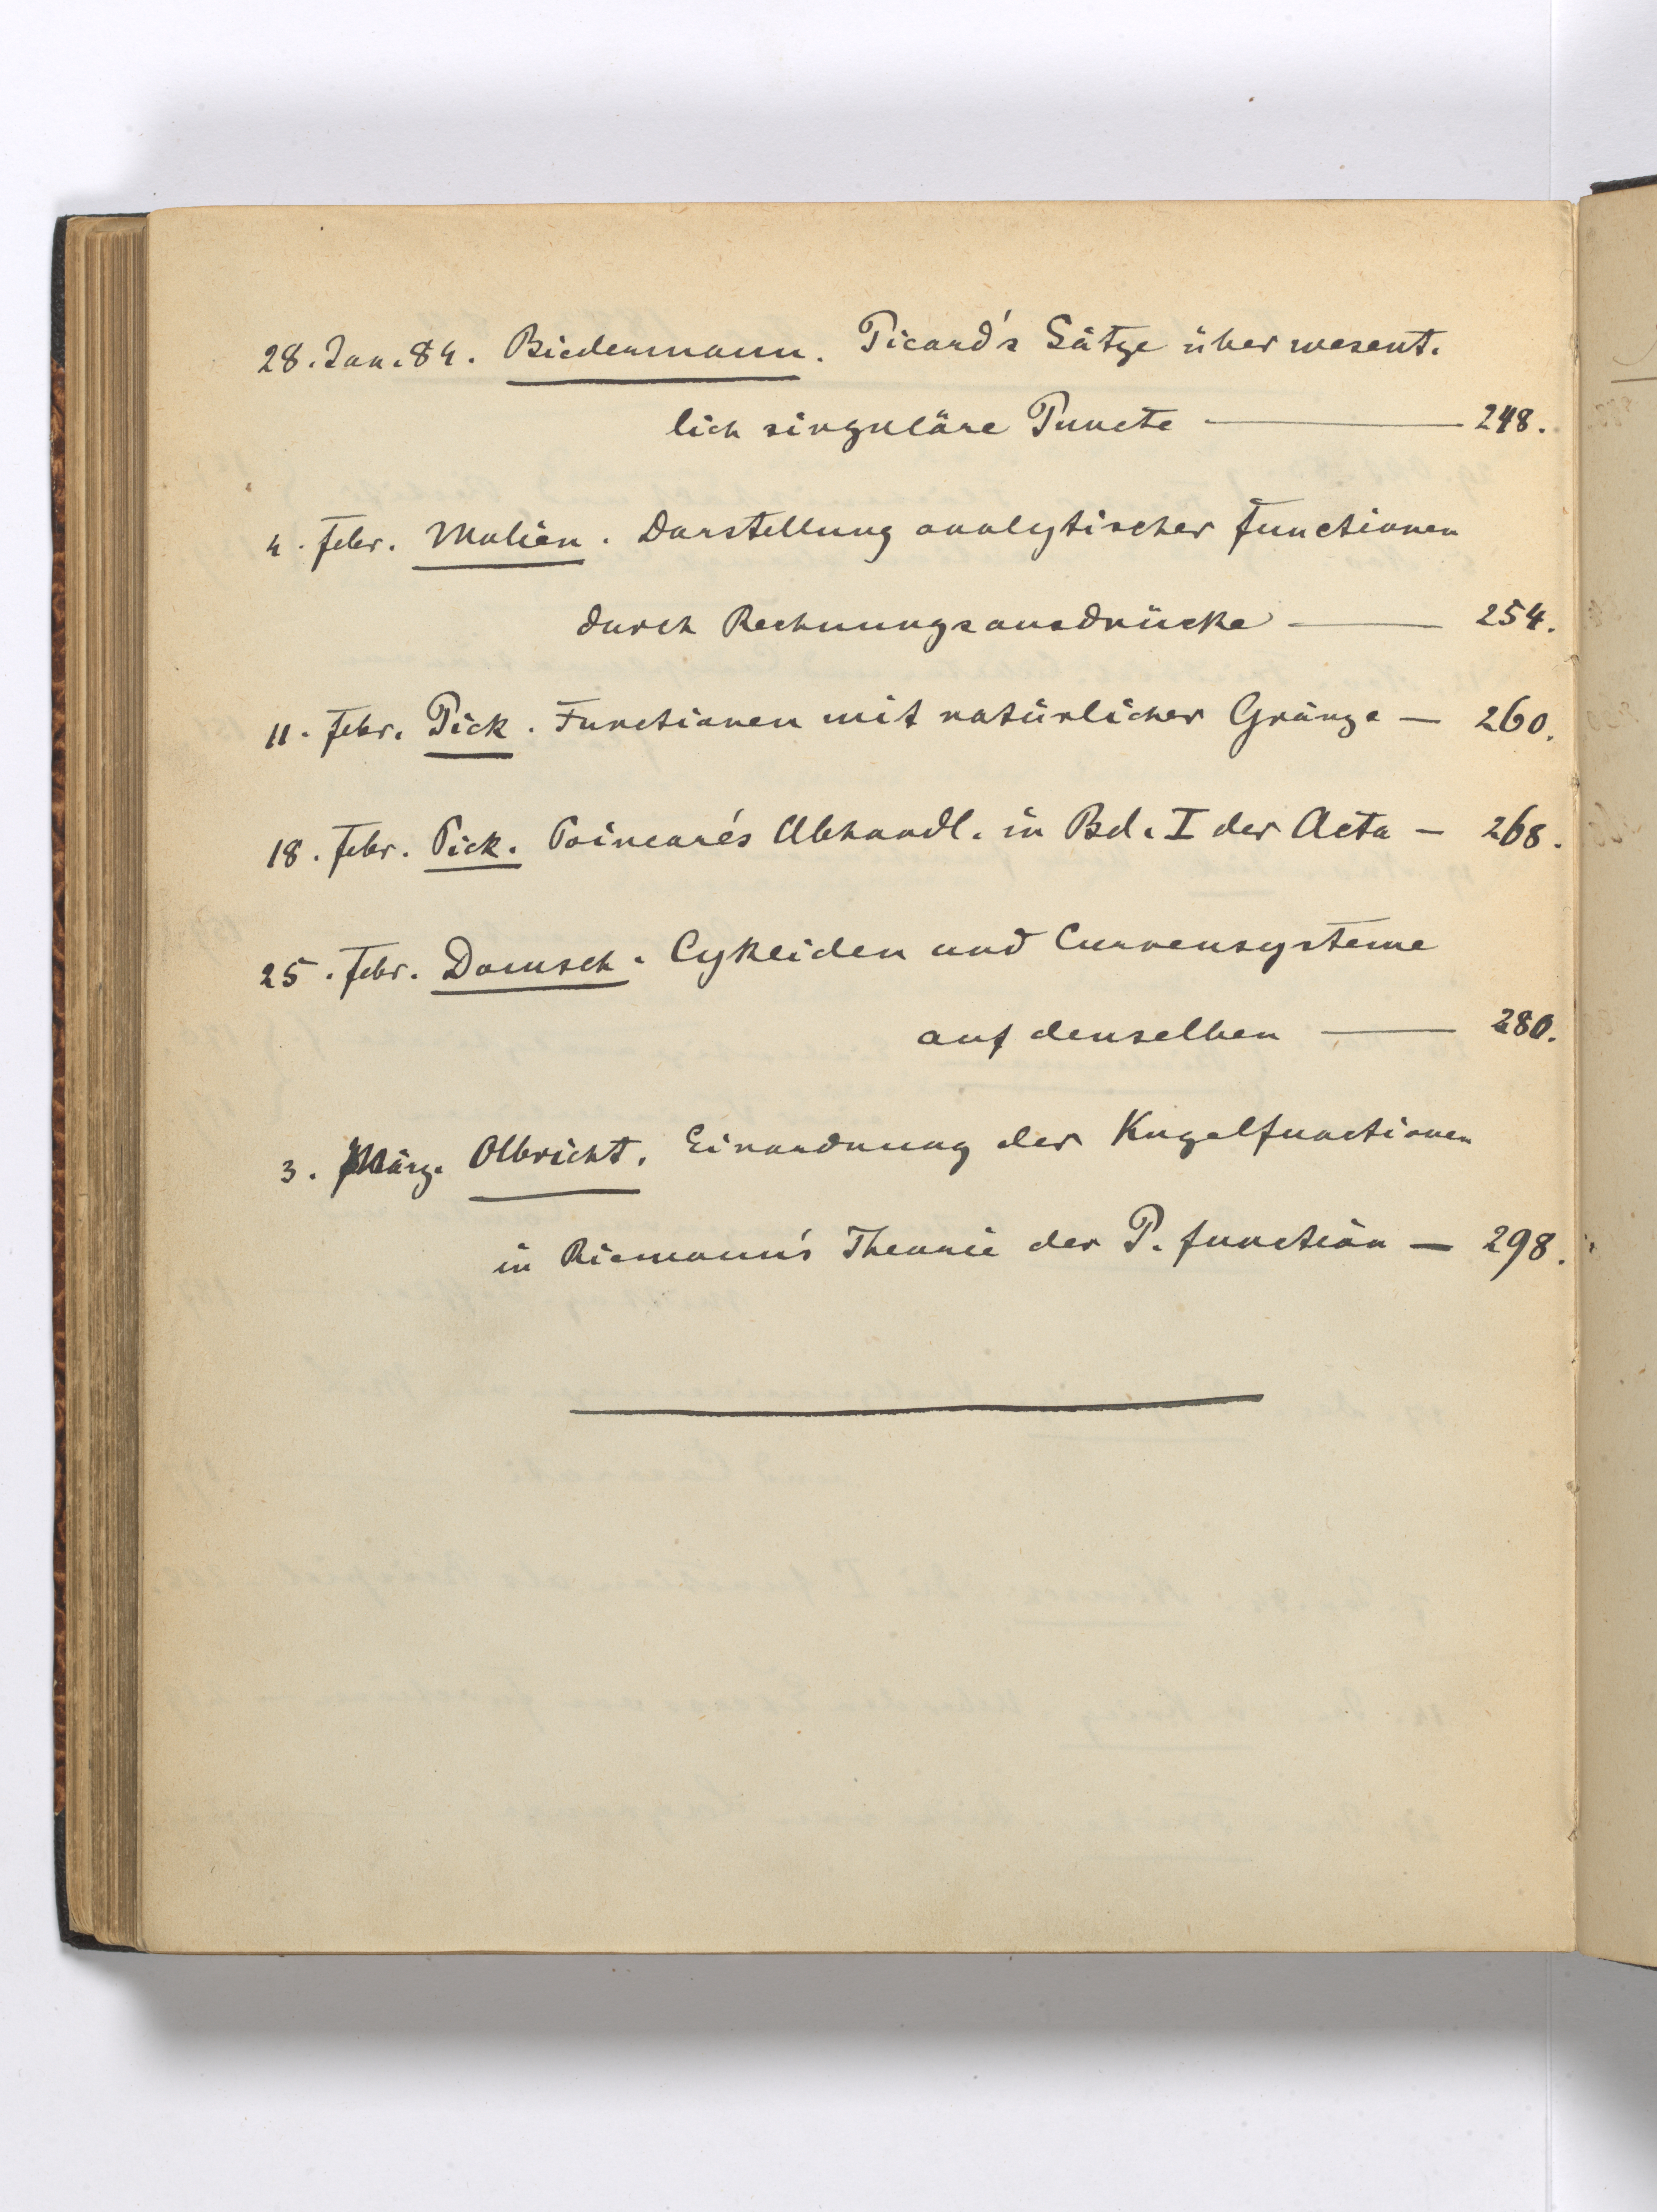 28. Jan. 84. Biedermann. Picard's Sätze über wesent-
lich singuläre Puncte — 248.
4. Febr. Molien. Darstellung analytischer Functionen
durch Rechnungsausdrücke — 254.
11. Febr. Pick. Functionen mit natürlicher Gränze — 260.
18. Febr. Pick. Poincaré's Abhandl. in Bd. I der Acta — 268.
25. Febr. Domsch. Cykliden und Curvensysteme
auf denselben — 280.
3. März. Olbricht. Einordnung der Kugelfunctionen
in Riemann's Theorie der P. function — 298.